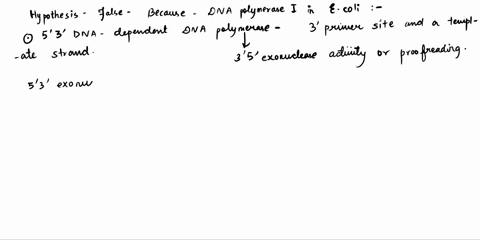 Hypothesis - False - Because - DNA polymerase I in E.coli :-
① 5'3' DNA - dependent DNA polymerase - 3' primer site and a templ-
-ate strand.
3'5' exonuclease activity or proofreading.
5'3' exonu